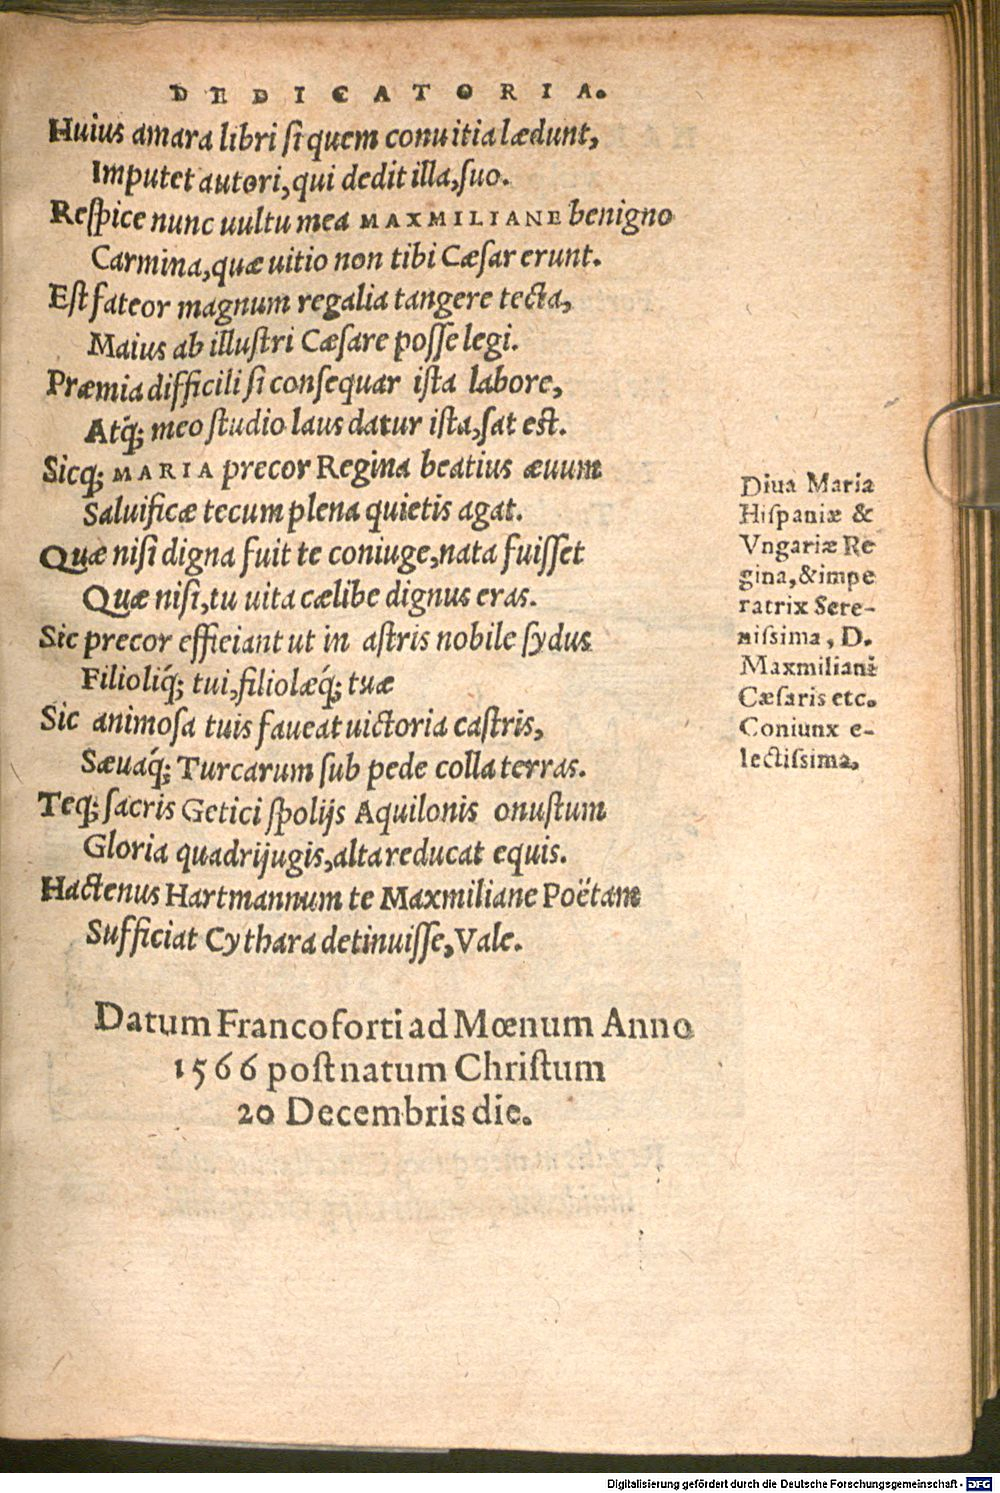 DEDICATORIA.
Huius amara libri si quem conuitia lædunt,
Imputet autori, qui dedit illa, suo.
Respice nunc uultu mea MAXMILIANE benigno
Carmina, quæ uitio non tibi Cæsar erunt.
Est fateor magnum regalia tangere tecta,
Maius ab illustri Cæsare posse legi.
Præmia difficili si consequar ista labore,
Atq́; meo studio laus datur ista, sat est.
Sicq; MARIA precor Regina beatius æuum
Saluificæ tecum plena quietis agat.
Quæ nisi digna fuit te coniuge, nata fuisset
Quæ nisi, tu uita cælibe dignus eras.
Sic precor efficiant ut in astris nobile sydus
Filioliq́; tui, filiolæq́; tuæ
Sic animosa tuis faueat uictoria castris,
Sæuaq́; Turcarum sub pede colla terras.
Teq; sacris Getici spolijs Aquilonis onustum
Gloria quadrijugis, alta reducat equis.
Hactenus Hartmannum te Maxmiliane Poëtam
Sufficiat Cythara detinuisse, Vale.
Datum Francoforti ad Mœnum Anno
1566 post natum Christum
20 Decembris die.
Diua Maria
Hispaniæ &
Vngariæ Re
gina, & impe
ratrix Sere-
nissima, D.
Maxmiliani
Cæsaris etc.
Coniunx e-
lectissima.
Digitalisierung gefördert durch die Deutsche Forschungsgemeinschaft - DFG